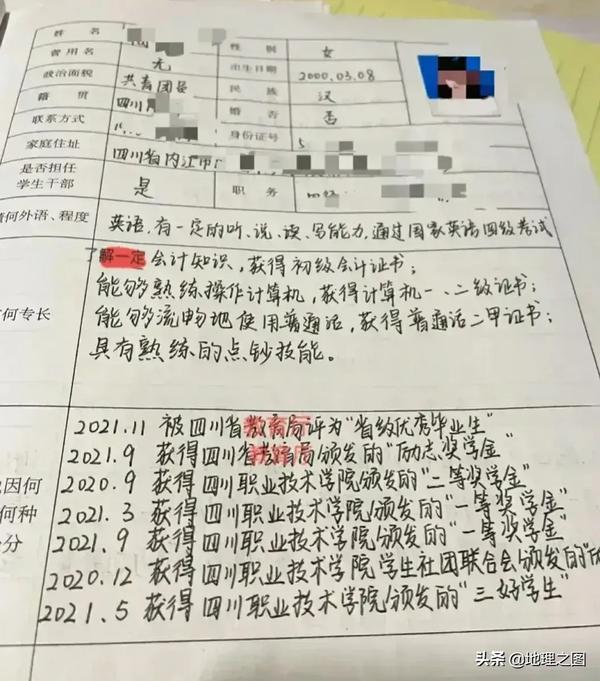 姓名 性别 女
曾用名 无 出生日期 2000.03.08
政治面貌 共青团员 民族 汉
籍贯 四川 婚否 否
联系方式 身份证号 5
家庭住址 四川省内江市
是否担任
学生干部 是 职务
何外语、程度 英语,有一定的听、说、读、写能力,通过国家英语四级考试
了解一定会计知识,获得初级会计证书;
能够熟练操作计算机,获得计算机一、二级证书;
何专长 能够流畅地使用普通话,获得普通话二甲证书;
具有熟练的点钞技能。
2021.11 被四川省教育局评为“省级优秀毕业生”
2021.9 获得四川省教育局颁发的“励志奖学金”
2020.9 获得四川职业技术学院颁发的“二等奖学金”
因何 2021.3 获得四川职业技术学院颁发的“一等奖学金”
何种 2021.9 获得四川职业技术学院颁发的“一等奖学金”
分 2020.12 获得四川职业技术学院学生社团联合会颁发的“
2021.5 获得四川职业技术学院颁发的“三好学生”
头条 @地理之图